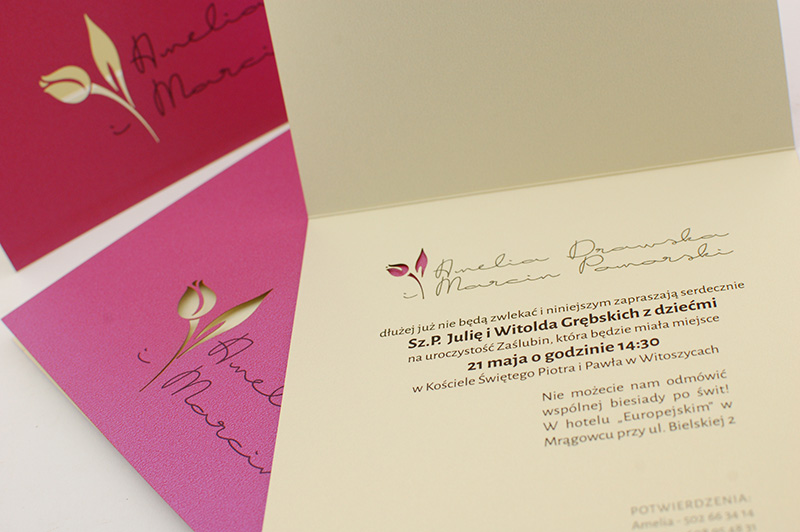 Amelia
i Marcin
Amelia
i Marcin
Amelia Drawska
i Marcin Panarski
dłużej już nie będą zwlekać i niniejszym zapraszają serdecznie
Sz.P. Julię i Witolda Grębskich z dziećmi
na uroczystość Zaślubin, która będzie miała miejsce
21 maja o godzinie 14:30
w Kościele Świętego Piotra i Pawła w Witoszycach
Nie możecie nam odmówić
wspólnej biesiady po świt!
W hotelu „Europejskim" w
Mrągowcu przy ul. Bielskiej 2
POTWIERDZENIA:
Amelia - 502 66 34 14